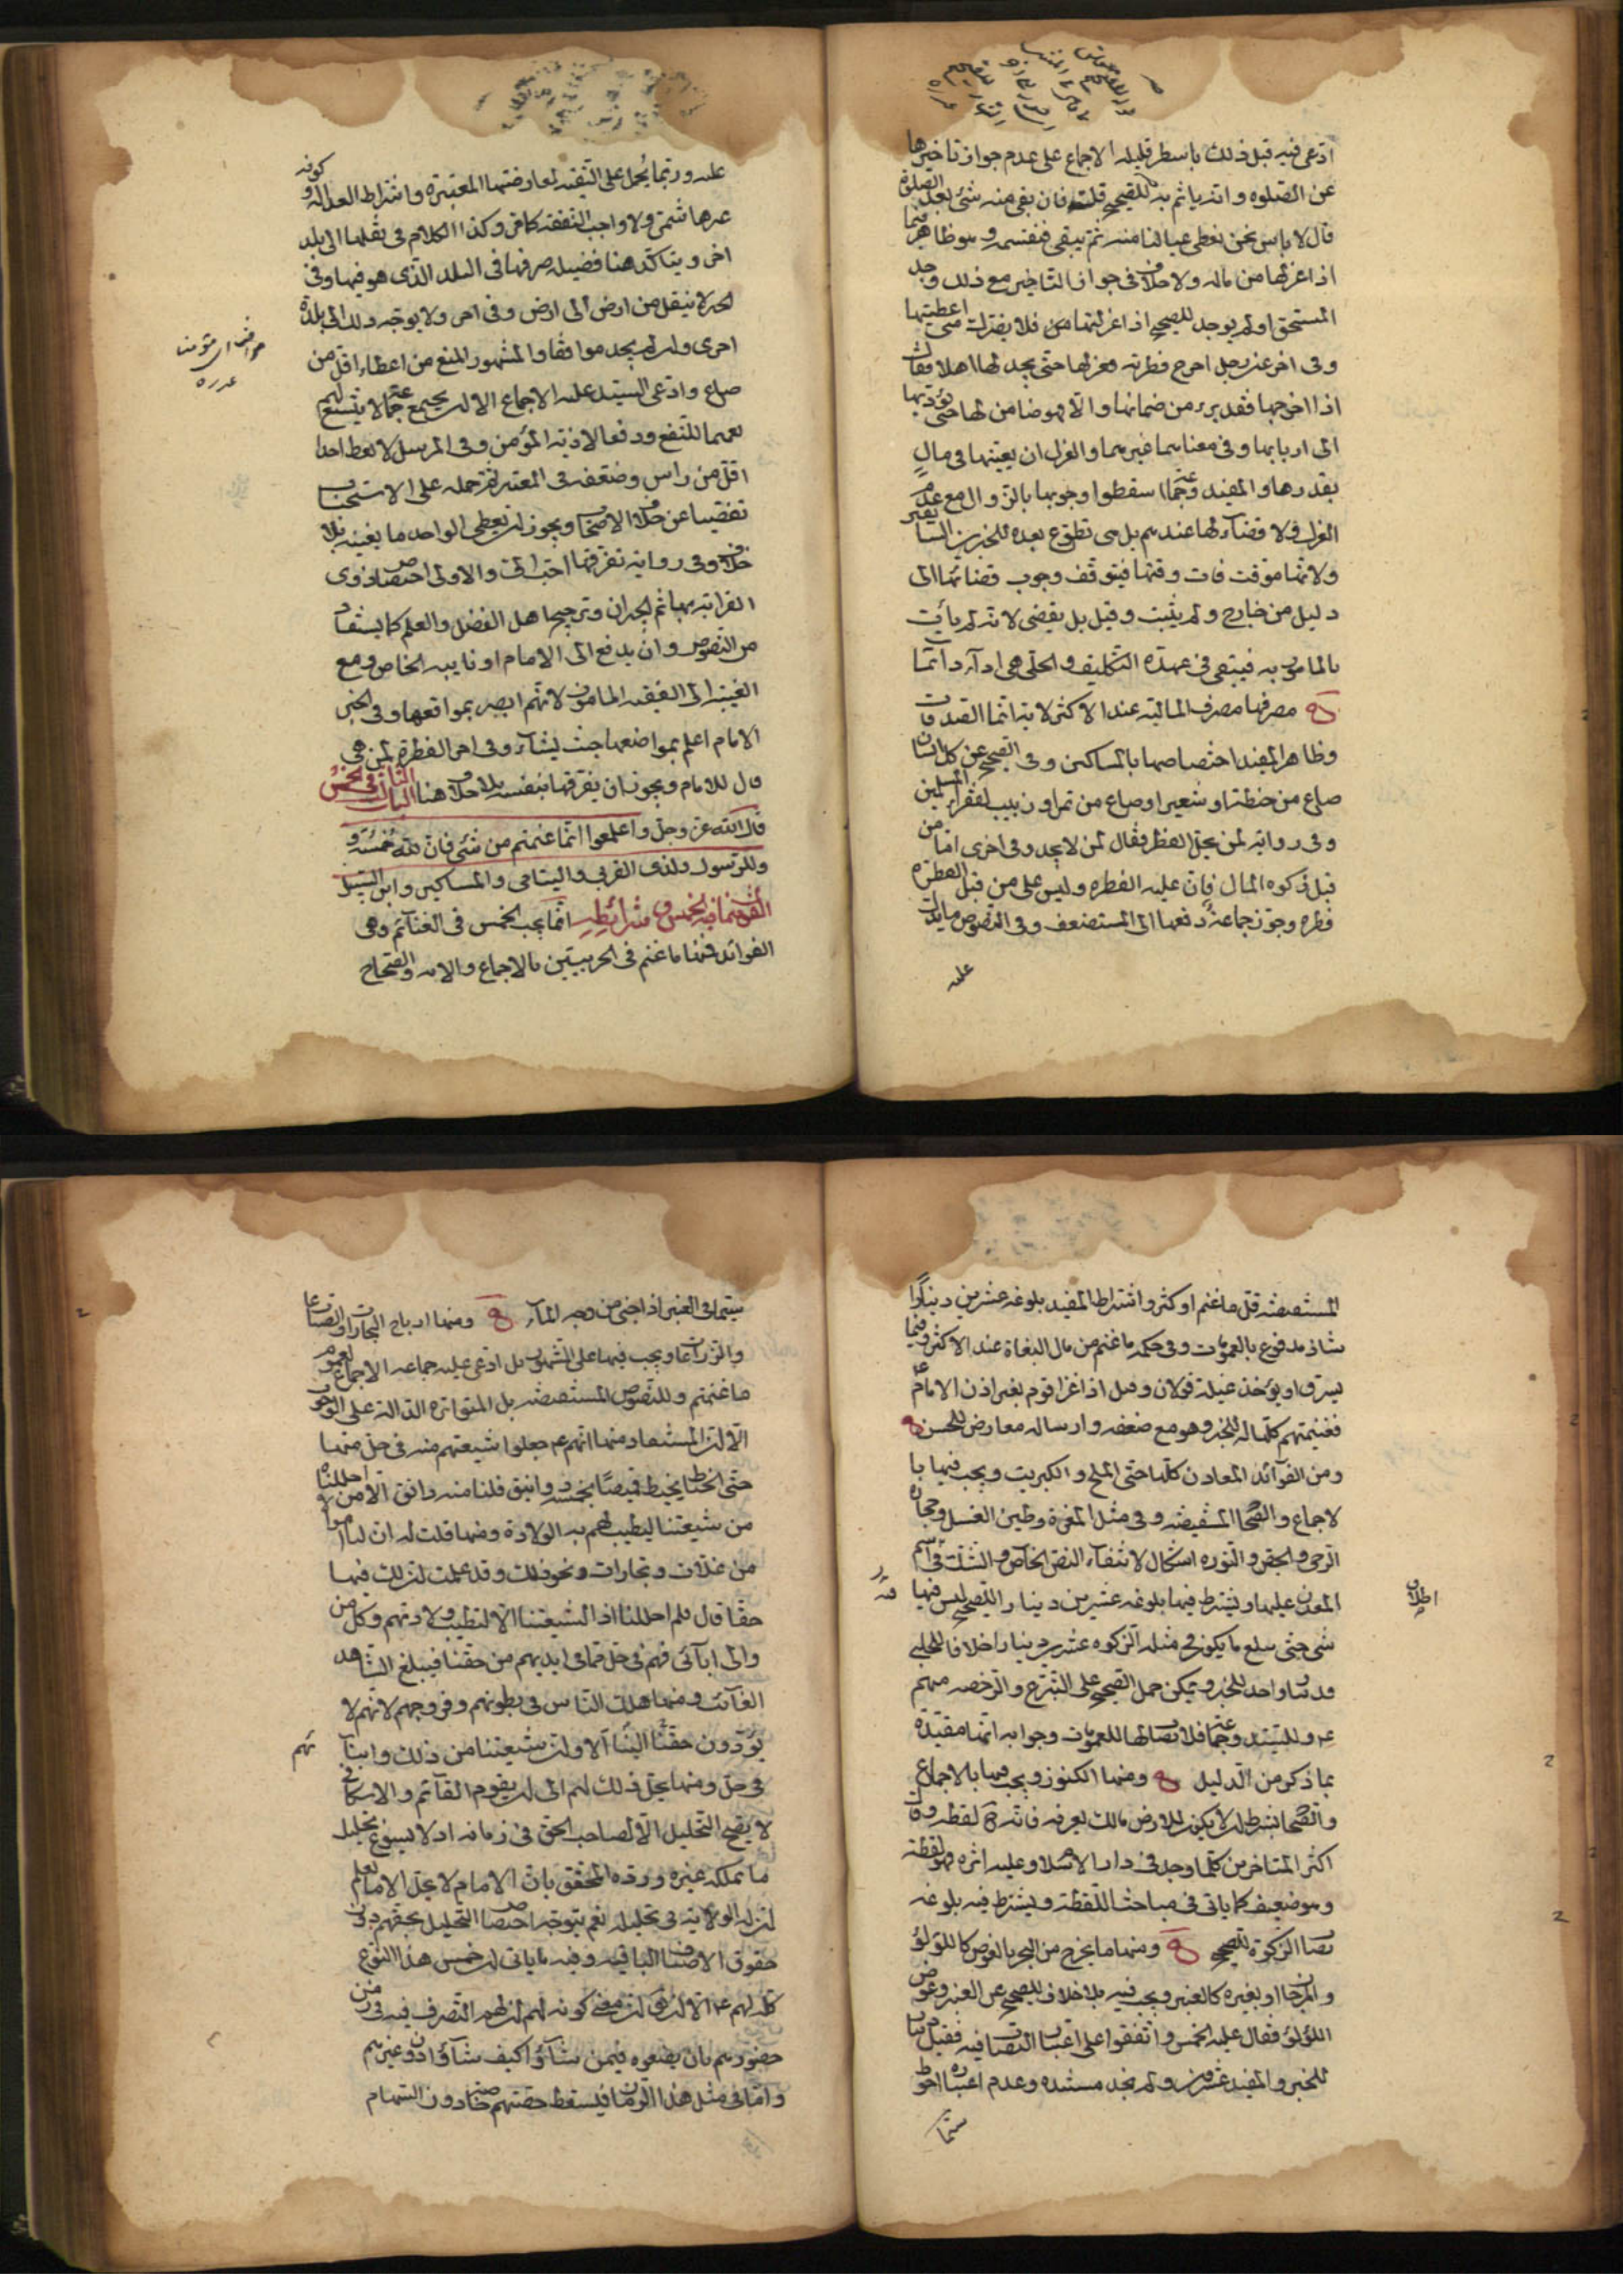 ادعى فيه قبل ذلك باسطر قليله الاجماع على عدم جواز تاخيرها
عن الصلوه وانه ياثم به للصحيح قلت فان بقى منه شئ بعد الصلوة
قال لا باس نحن نعطى عيالنا منه ثم يبقى فنقسمه وهو ظاهر فيما
اذا عزلها من ماله ولا خلاف فى جواز التاخير مع ذلك وجد
المستحق او لم يوجد للصحيح اذا عزلتها فلا يضرك متى اعطيتها
وفى اخر عن رجل اخرج فطرته فعزلها حتى يجد لها اهلا فقال
اذا اخرجها فقد برء من ضمانها والا فهو ضامن لها حتى يؤديها
الى اربابها وفى معناهما غيرهما والعزل ان يعينها فى مال
بقدرها والمفيد وجماعة اسقطوا وجوبها بالزوال مع عدم
العزل ولا قضاء لها عندهم بل هى تطوع بعده للخبرين
ولانها موقت فات وقتها فيتوقف وجوب قضائها الى
دليل من خارج ولم يثبت وقيل بل يقضى لانه لم يأت
بالمامور به فيبقى فى عهدة التكليف والحلى هى اداء دائما
مصرفها مصرف المالية عند الاكثر لاية انما الصدقات
وظاهر المفيد اختصاصها بالمساكين وفى الصحيح عن كل انسان
صاع من حنطة او شعير او صاع من تمر او زبيب لفقراء المسلمين
وفى رواية لمن تحل الفطرة فقال لمن لا يجد وفى اخرى اما من
قبل زكوه المال فان عليه الفطره وليس على من قبل الفطرة
فطره وجوز جماعة دفعها الى المستضعف وفى النصوص ما يدل
عليه
عليه وربما يحمل على التقيه لمعارضتها المعتبرة واشتراط العداله وكونه
غير هاشمى ولا واجب النفقه كما مر وكذا الكلام فى نقلها الى بلد
اخر ويتاكد هنا فضيله صرفها فى البلد الذى هو فيها وفى
الخبر لا ينقل من ارض الى ارض وفى اخر ولا يوجه ذلك الى بلدة
اخرى وان لم يجد موافقا والمشهور المنع من اعطاء اقل من
صاع وادعى السيد عليه الاجماع الا ان يجتمع جماعة لا يتسع لهم
تعميما للنفع ودفعا لاذية المؤمن وفى المرسل لا تعط احدا
اقل من راس وضعفه فى المعتبر ثم حمله على الاستحباب
تفصيا عن خلاف الاصحاب ويجوز ان يعطى الواحد ما يغنيه بلا
خلاف وفى رواية تفرقها احب الى والاولى اختصاص ذوى
القرابة بها ثم الجيران وترجيح اهل الفضل والعلم كما يستفاد
من النصوص وان يدفع الى الامام او نايبه الخاص ومع
الغيبة الى الفقيه المامون لانهم ابصر بمواقعها وفى الخبر
الامام اعلم بمواضعها حيث يشاء وفى اخر الفطرة لمن هى
قال للامام ويجوز ان يفرقها بنفسه بلا خلاف هنا الباب الثانى فى الخمس
قال الله عز وجل واعلموا انما غنمتم من شئ فان لله خمسه و
وللرسول ولذى القربى واليتامى والمساكين وابن السبيل
القول فيما فيه الخمس وشرائطه انما يجب الخمس فى الغنائم وهى
الفوائد فمنها ما غنم فى الحرب بالاجماع والايه والصحاح
المستفيضه قل ما غنم او كثر واشتراط المفيد بلوغه عشرين دينارا
شاذ مدفوع بالعمومات وفى حكمه ما غنم من مال البغاة عند الاكثر وفيما
يسرق او يؤخذ غيلة قولان وقيل اذا غزا قوم بغير اذن الامام ع
فغنيمتهم كلها له للخبر وهو مع ضعفه وارساله معارض للحسن
ومن الفوائد المعادن كلها حتى الملح والكبريت ويجب فيها با
لاجماع والصحاح المستفيضه وفى مثل المغرة وطين الغسل وحجارة
الرحى والجص والنوره اشكال لانتفاء النص الخاص والشك فى اسم
المعدن عليها ويشترط فيها بلوغه عشرين دينار للصحيح ليس فيها
شى حتى يبلغ ما يكون فى مثله الزكوه عشرين دينارا خلافا للحلبى
فدينارا واحد للخبر ويمكن حمل الصحيح على التبرع والرخصه منهم
ع وللسيد وجماعة فلا نصاب لها للعمومات وجوابه انها مقيدة
بما ذكر من الدليل ومنها الكنوز ويجب فيها بالاجماع
والصحاح بشرط ان لا يكون للارض مالك يعرفه فانه ح لقطه وقال
اكثر المتاخرين كلما وجد فى دار الاسلام وعليه اثره فهو لقطة
وهو ضعيف كما ياتى فى مباحث اللقطة ويشترط فيه بلوغه
نصاب الزكوة للصحيح ومنها ما يخرج من البحر بالغوص كاللؤلؤ
والمرجان او بغيره كالعنبر ويجب فيه بلا خلاف للصحيح عن العنبر وغوص
اللؤلؤ فقال عليه الخمس واتفقوا على اعتبار النصاب فيه فقيل دينار
للخبر والمفيد عشرون ولم نجد مستنده وعدم اعتباره احوط
سيما
سيما فى العنبر اذا جنى من وجه الماء ومنها ارباح التجارات والصناعات
والزراعات ويجب فيها على المشهور بل ادعى عليه جماعه الاجماع لعموم
ما غنمتم وللنصوص المستفيضه بل المتواتره الدالة على الوجوب
الا ان المستفاد منها انهم ع جعلوا شيعتهم منه فى حل منها
حتى الخياط يخيط قميصا بخمسة دوانيق فلنا منه دانق الا من احللناه
من شيعتنا ليطيب لهم به الولادة ومنها قلت له ان لنا اموالا
من غلات وتجارات ونحو ذلك وقد علمت ان لك فيها
حقا قال فلم احللنا اذا لشيعتنا الا لتطيب ولادتهم وكل من
والى ابائى فهم فى حل مما فى ايديهم من حقنا فيبلغ الشاهد
الغائب ومنها هلك الناس فى بطونهم وفروجهم لانهم لا
يؤدون حقنا الينا الا وان شيعتنا من ذلك وابنائهم
فى حل ومنها يحل ذلك لهم الى ان يقوم القائم والاسكافى
لا يصح التحليل الا لصاحب الحق فى زمانه اذ لا يسوغ تحليل
ما يملكه غيره ورده المحقق بان الامام لا يحل الا ما يعلم
ان له الولاية فى تحليله نعم يتوجه اختصاص التحليل بحقهم دون
حقوق الاصناف الباقيه وفيه ما ياتى ان خمس هذا النوع
كله لهم ع الا ان معنى كونه لهم ان لهم التصرف فيه فى زمن
حضورهم بان يضعوه فيمن شاؤا كيف شاؤا دون غيرهم
واما فى مثل هذا الزمان فيسقط حصتهم خاصة دون السهام